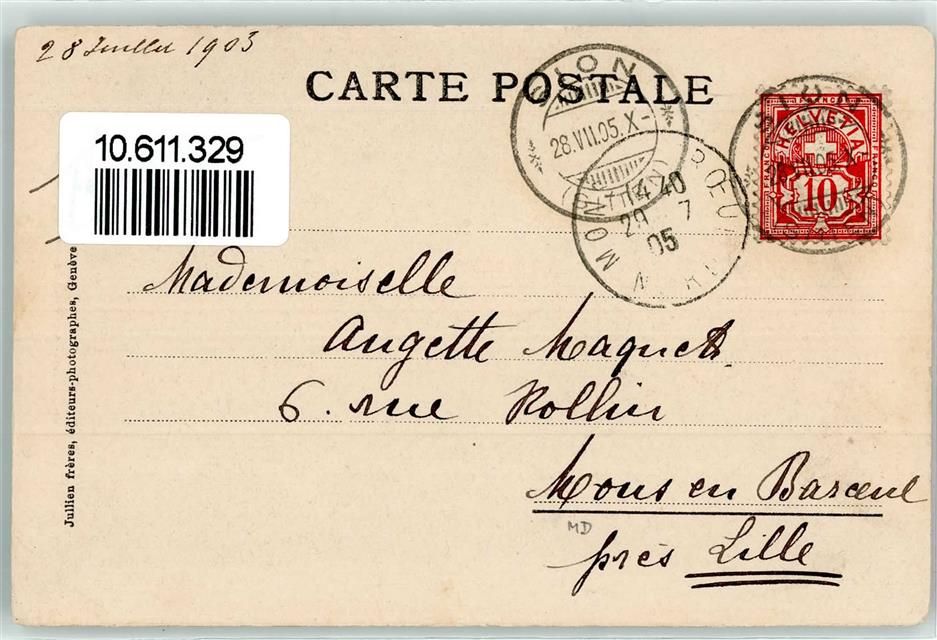 28 Juillet 1903
CARTE POSTALE
SION
28.VII.05.X-
FRANCO
HELVETIA
10
FRANCO
FRANCO
10.611.329
14 40
29 7
05
Jullien frères, éditeurs-photographes, Genève
Mademoiselle
Angette Maquet
6. rue Rollin
Mons en Barœul
MD
près Lille